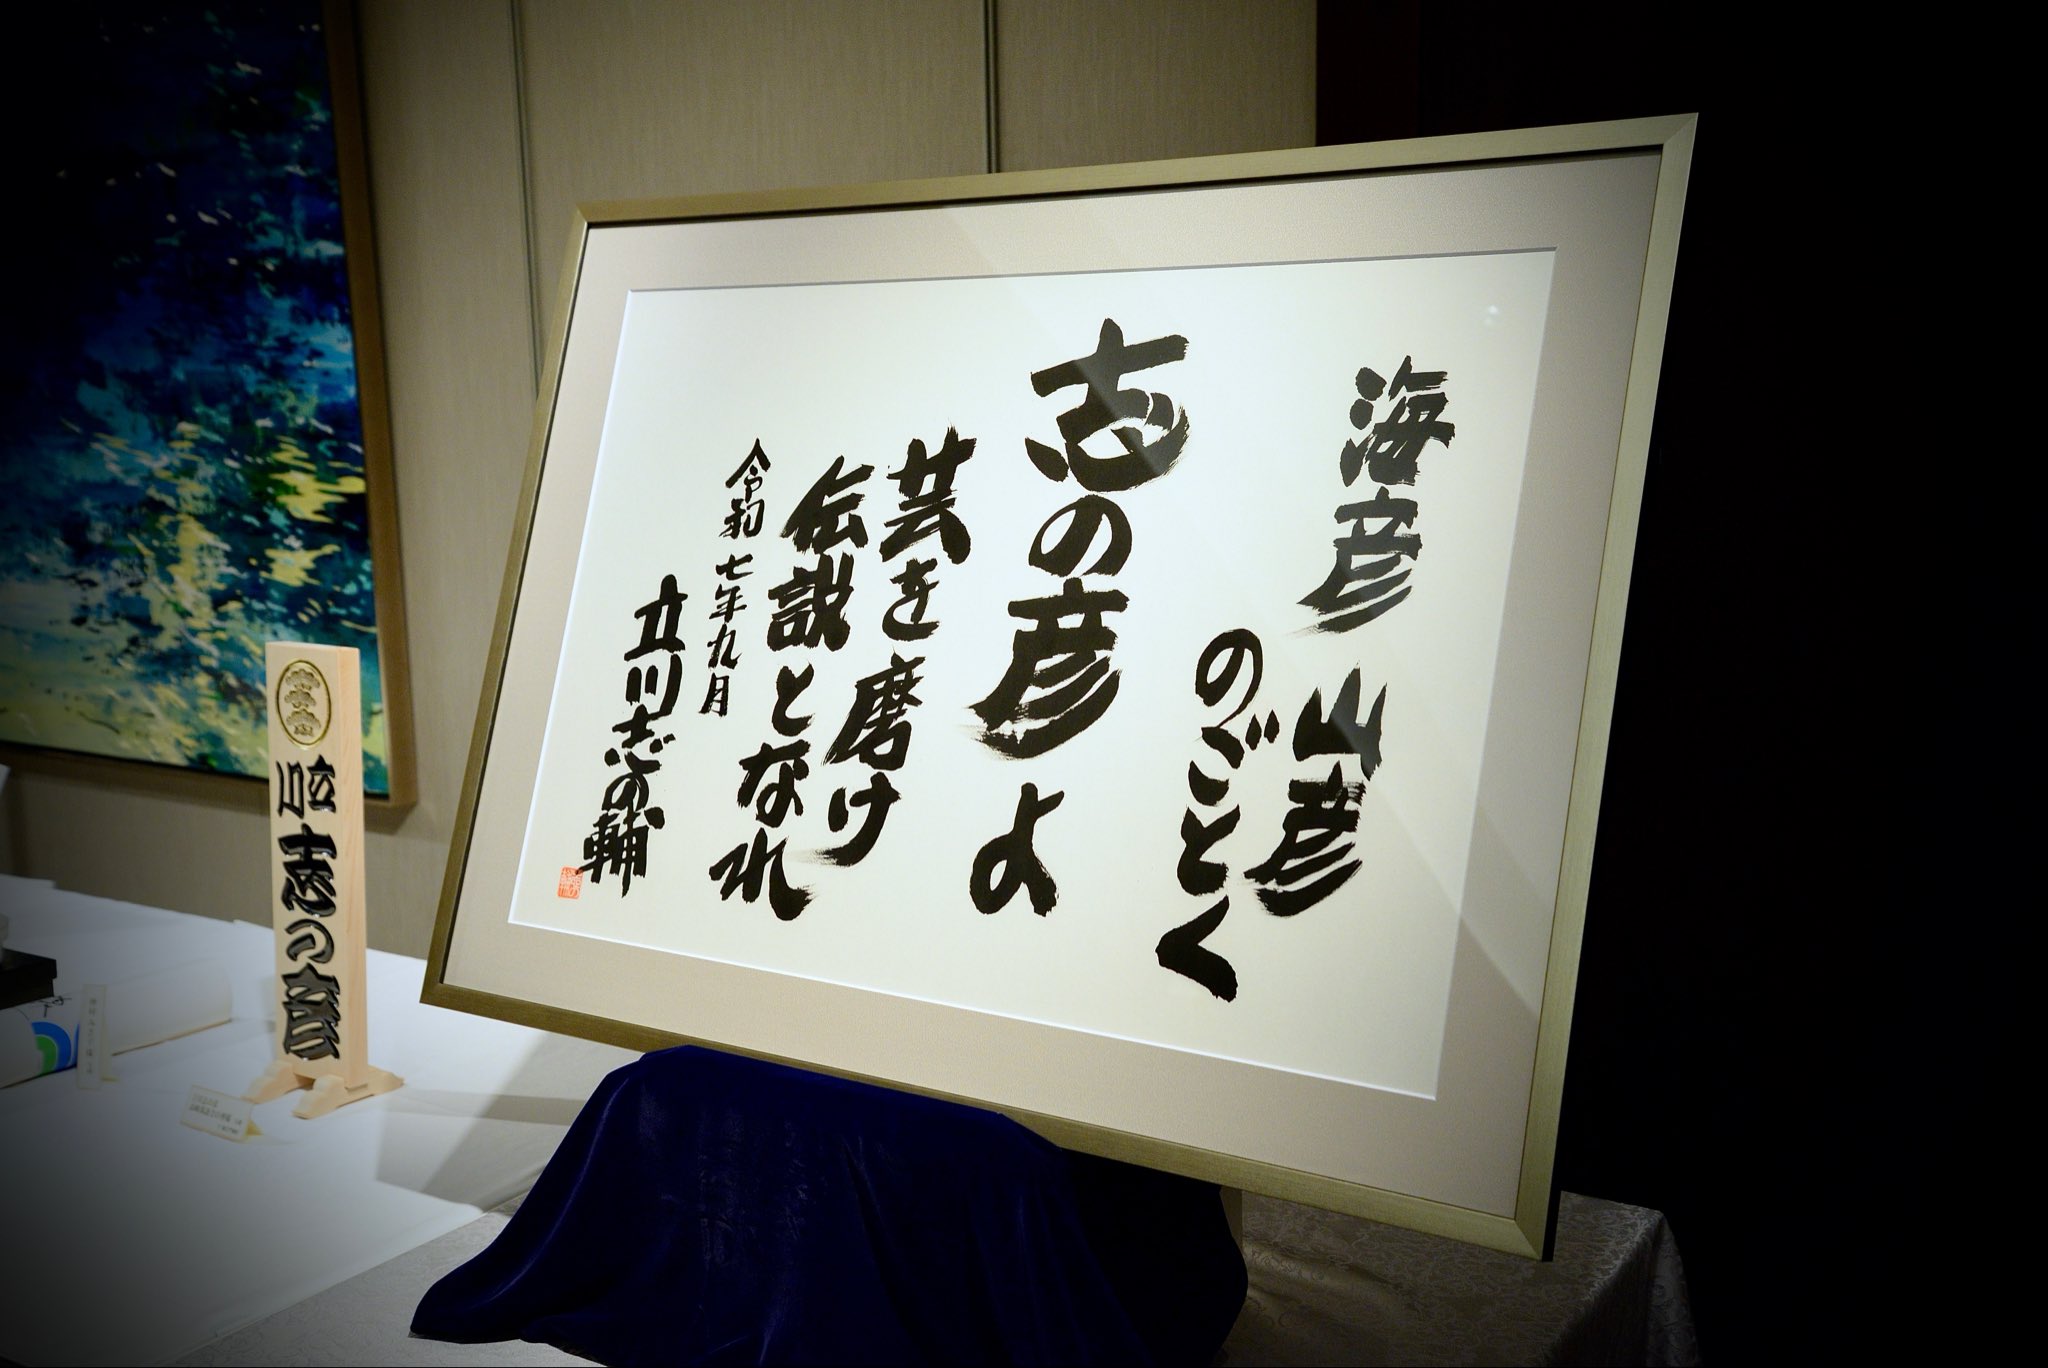 海彦 山彦
のごとく
志の彦よ
芸を磨け
伝説となれ
令和七年九月
立川志の輔
立川
志の彦